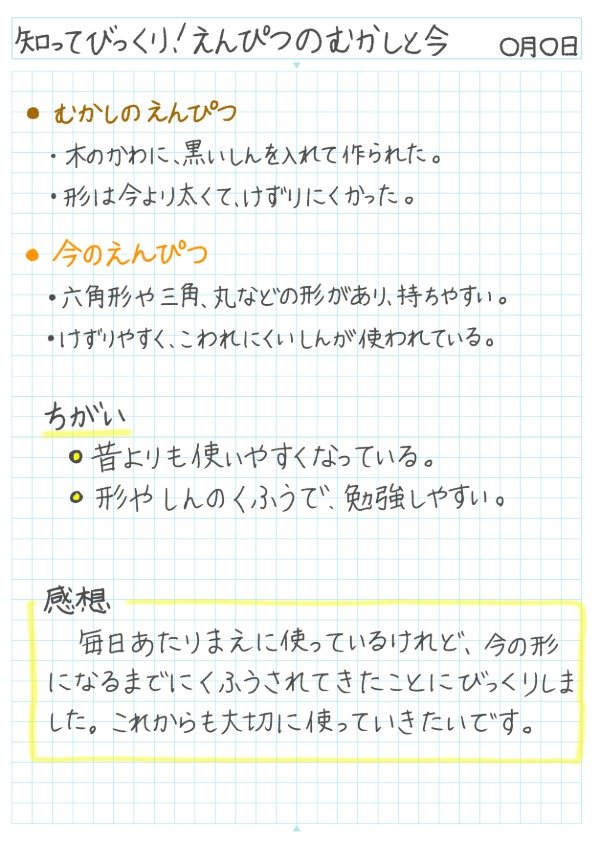 知ってびっくり！えんぴつのむかしと今　○月○日
● むかしのえんぴつ
・木のかわに、黒いしんを入れて作られた。
・形は今より太くて、けずりにくかった。
● 今のえんぴつ
・六角形や三角、丸などの形があり、持ちやすい。
・けずりやすく、こわれにくいしんが使われている。
ちがい
○ 昔よりも使いやすくなっている。
○ 形やしんのくふうで、勉強しやすい。
感想
毎日あたりまえに使っているけれど、今の形
になるまでにくふうされてきたことにびっくりしま
した。これからも大切に使っていきたいです。